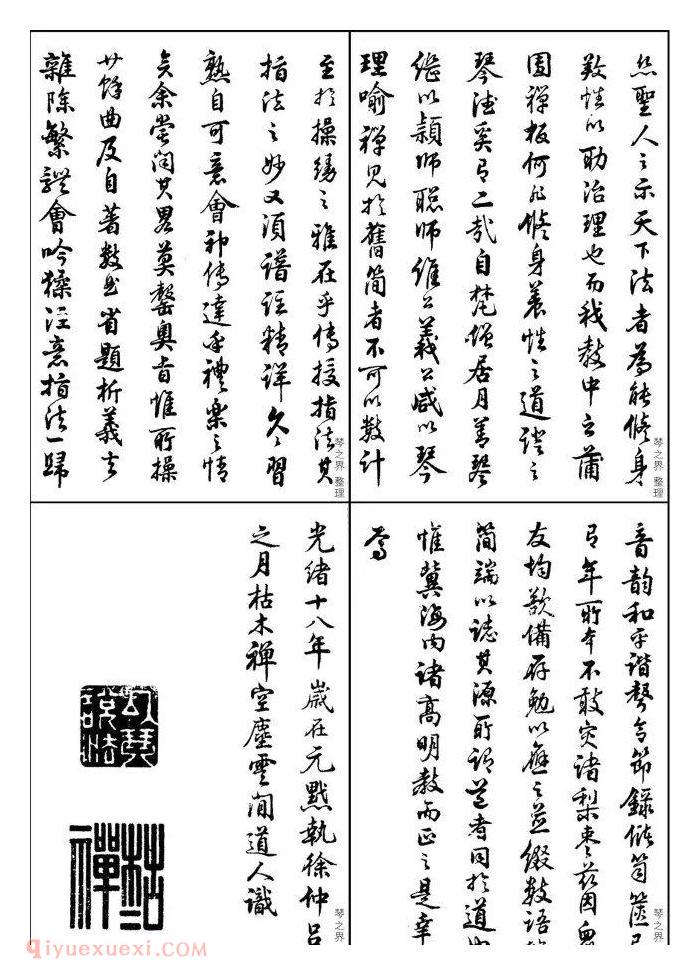 然聖人之示天下法者為能脩身
敦性以助治理也而我教中之蒲
團禪板何非脩身養性之道證之
琴德奚有二哉自梵僧居月善琴
継以穎師聰師維公義公咸以琴
理喻禪見於舊簡者不可以數計
至於操縵之雅在乎傳授指法其
指法之妙又須譜註精詳久久習
熟自可意會神傳達乎禮樂之情
矣余嘗聞其畧莫罄奧旨惟所操
廿餘曲及自著數曲省題析義去
雜除繁體會吟猱注意指法一歸
音韻和平諧聲合節錄儲笥篋已
有年所本不敢灾諸梨棗茲因衆
友均歎備存勉以應之並綴數語
簡端以誌其源所謂者同於道也
惟冀海内諸高明教而正之是幸
焉
光緒十八年歲在元黓執徐仲呂
之月枯木禪空塵雲閒道人識
以琴說法
枯木禪
琴之界 整理
琴之界 整理
琴之界
琴之界
qiyuexuexi.COM